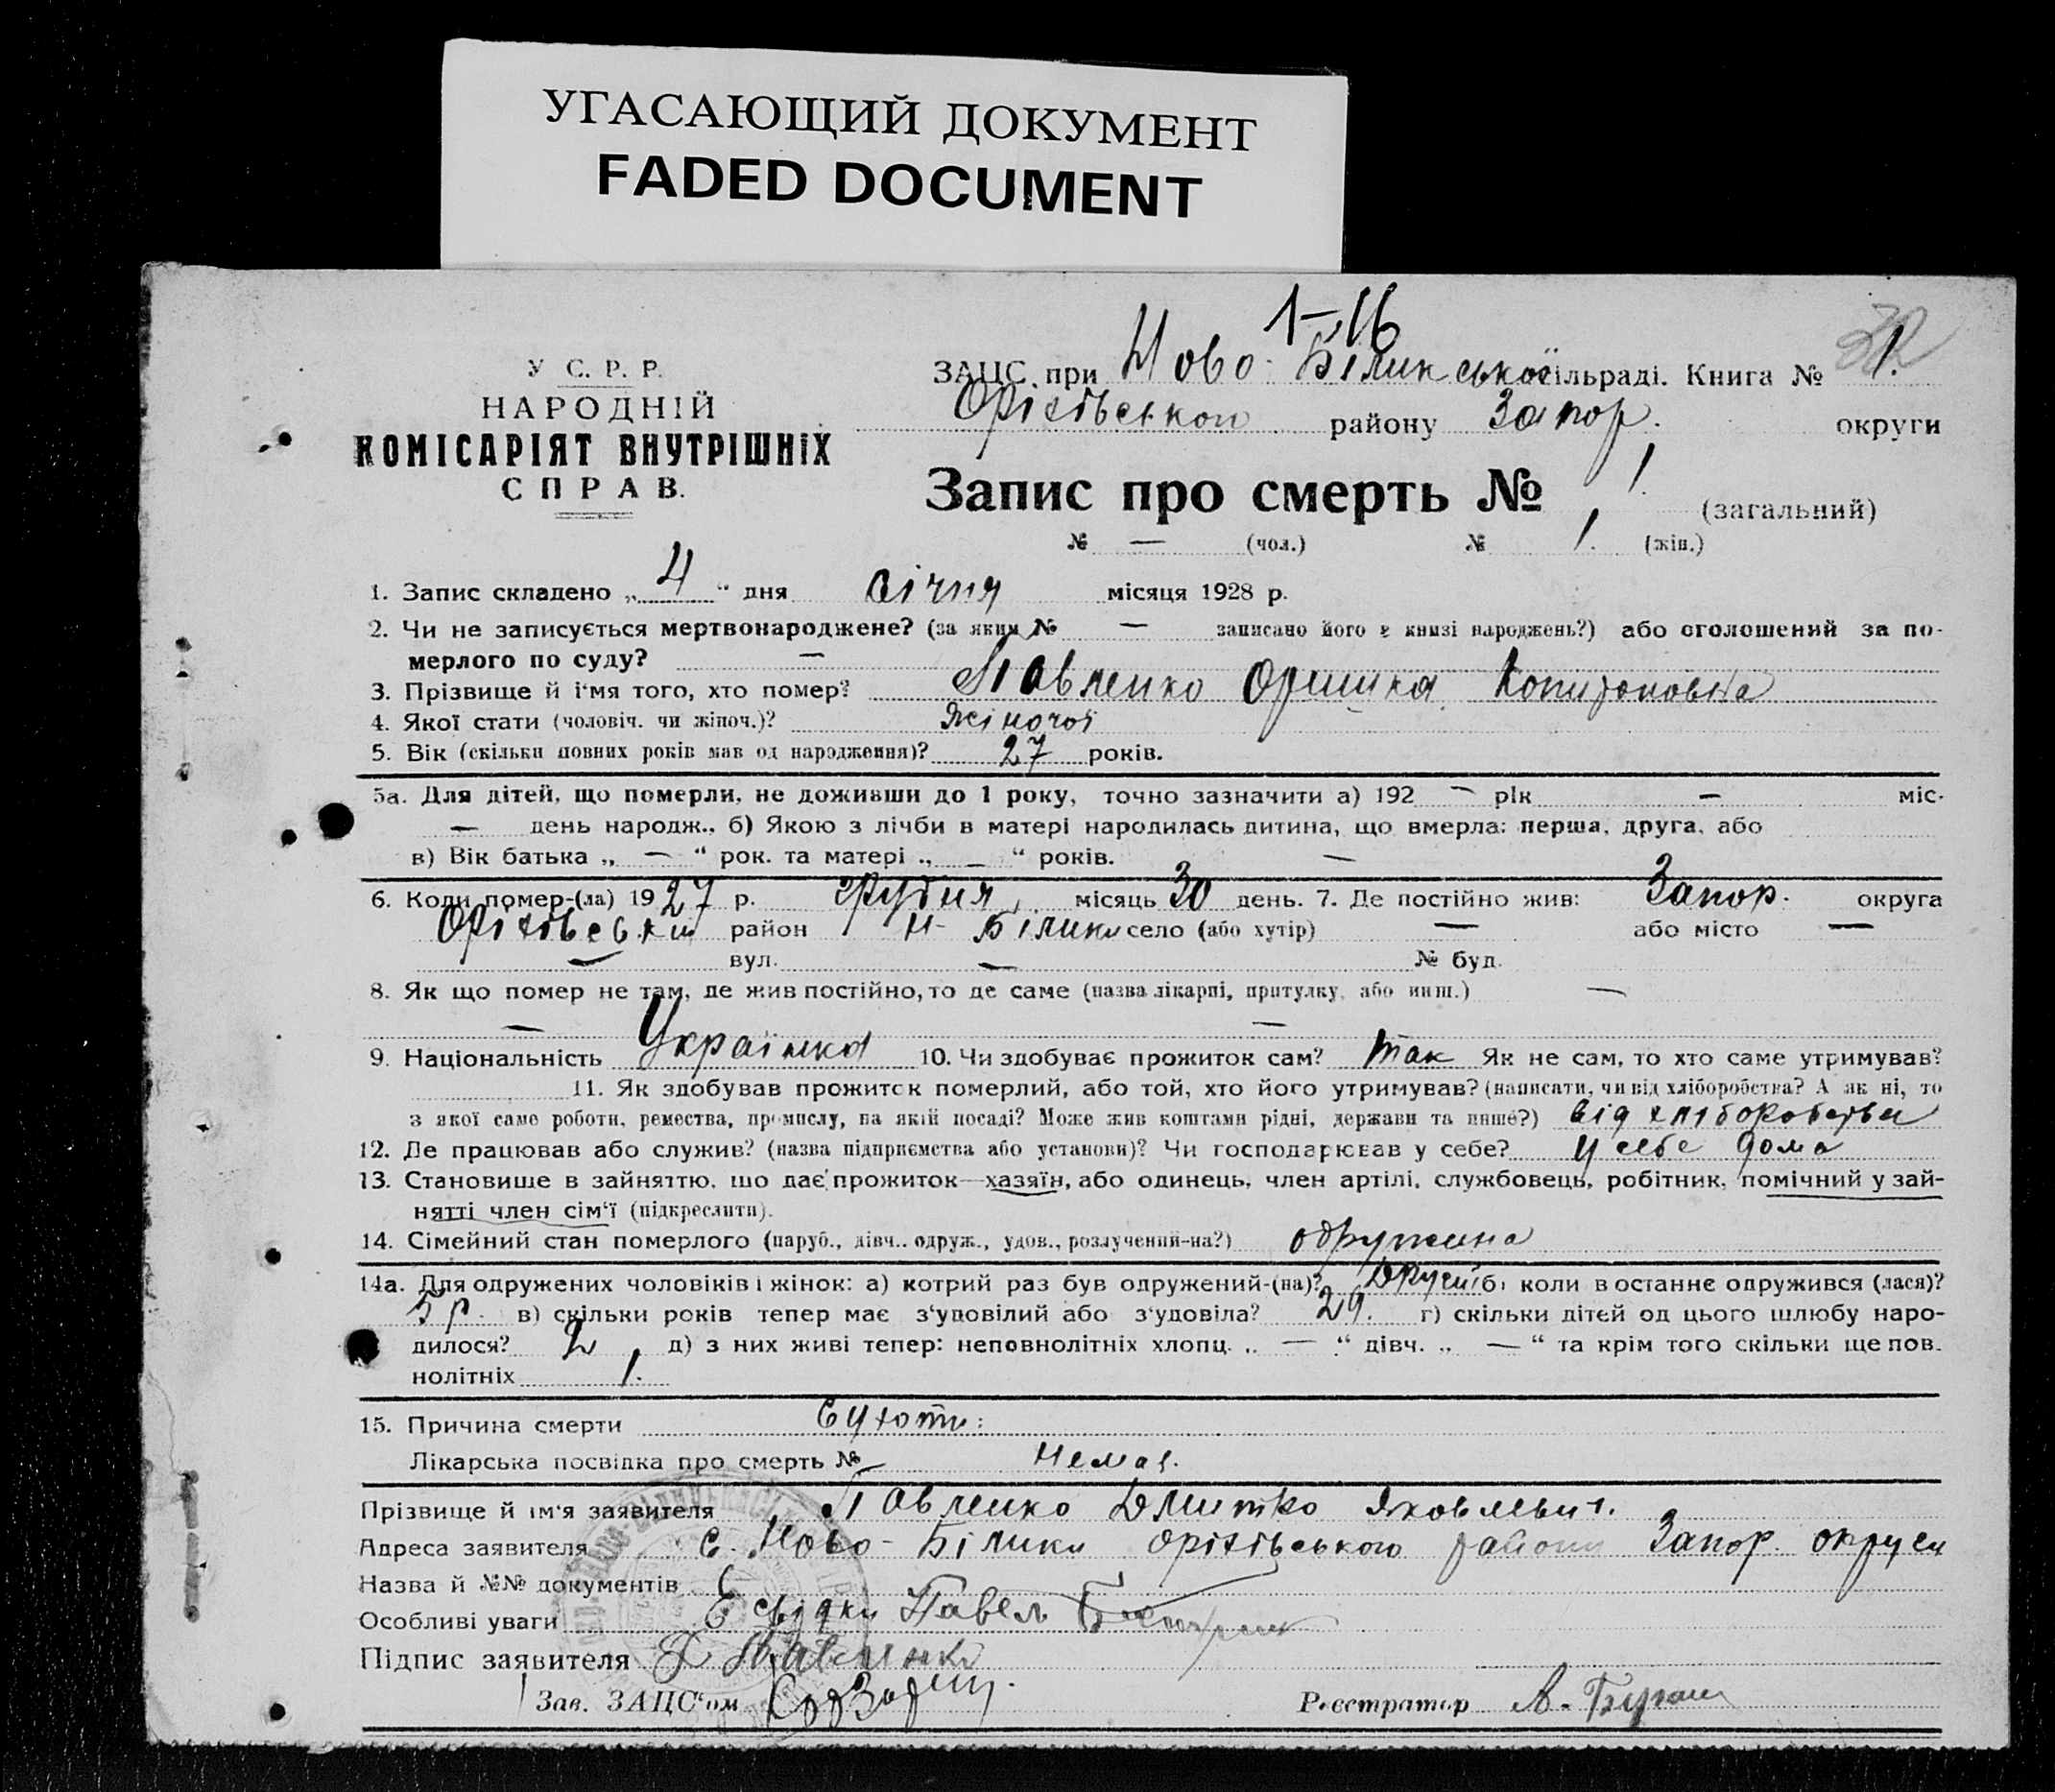 УГАСАЮЩИЙ ДОКУМЕНТ
FADED DOCUMENT
1-16
У С. Р. Р.
НАРОДНІЙ
КОМІСАРІЯТ ВНУТРІШНІХ
СПРАВ.
ЗАЦС при Ново-Біликськоі сільраді. Книга № 1.
Оріхівського району Запор. округи
Запис про смерть № 1. (загальний)
№ — (чол.) № 1. (жін.)
1. Запис складено „ 4 “ дня січня місяця 1928 р.
2. Чи не записується мертвонароджене? (за яким № — записано його в книзі народжень?) або оголошений за по-
мерлого по суду? —
3. Прізвище й і'мя того, хто помер? Павленко Оришка
4. Якої стати (чоловіч. чи жіноч.)? жіночоі
5. Вік (скільки повних років мав од народження)? 27 років.
5а. Для дітей, що померли, не доживши до 1 року, точно зазначити а) 192 — рік — міс.
— день народж., б) Якою з лічби в матері народилась дитина, що вмерла: перша, друга, або
в) Вік батька „ — “ рок. та матері „ — “ років. —
6. Коли помер-(ла) 1927 р. грудня місяць 30 день. 7. Де постійно жив: Запор. округа
Оріхівський район Н-Білики село (або хутір) — або місто —
— вул. — № буд.
8. Як що помер не там, де жив постійно, то де саме (назва лікарні, притулку, або инш.) —
— —
9. Національність Українка 10. Чи здобуває прожиток сам? так Як не сам, то хто саме утримував?
11. Як здобував прожиток померлий, або той, хто його утримував? (написати, чи від хліборобства? А як ні, то
з якої саме роботи, ремества, промислу, на якій посаді? Може жив коштами рідні, держави та инше?) від хліборобства
12. Де працював або служив? (назва підприємства або установи)? Чи господарював у себе? у себе дома
13. Становище в зайняттю, що дає прожиток—хазяїн, або одинець, член артілі, службовець, робітник, помічний у зай-
нятті член сім'ї (підкреслити).
14. Сімейний стан померлого (паруб., дівч., одруж., удов., розлучений-на?) одружина
14а. Для одружених чоловіків і жінок: а) котрий раз був одружений-(на)? Другий б) коли в останнє одружився (лася)?
5 р. в) скільки років тепер має з'удовілий або з'удовіла? 29. г) скільки дітей од цього шлюбу наро-
дилося? 2 д) з них живі тепер: неповнолітніх хлопц. „ — “ дівч. „ — “ та крім того скільки ще пов.
нолітніх 1.
15. Причина смерти Сухоти:
Лікарська посвідка про смерть № Немає.
Прізвище й ім'я заявителя Павленко Дмитко Яковлевич.
Адреса заявителя с. Ново-Білики Оріхівського району Запор. округи
Назва й №№ документів
Особливі уваги Свідки Павел
Підпис заявителя Д Павленко
Зав. ЗАЦС'ом
Реєстратор А.